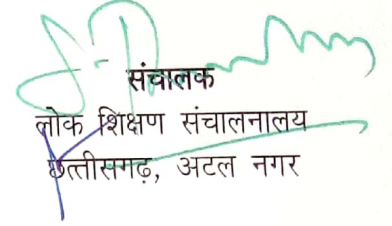 संचालक
लोक शिक्षण संचालनालय
छत्तीसगढ़, अटल नगर